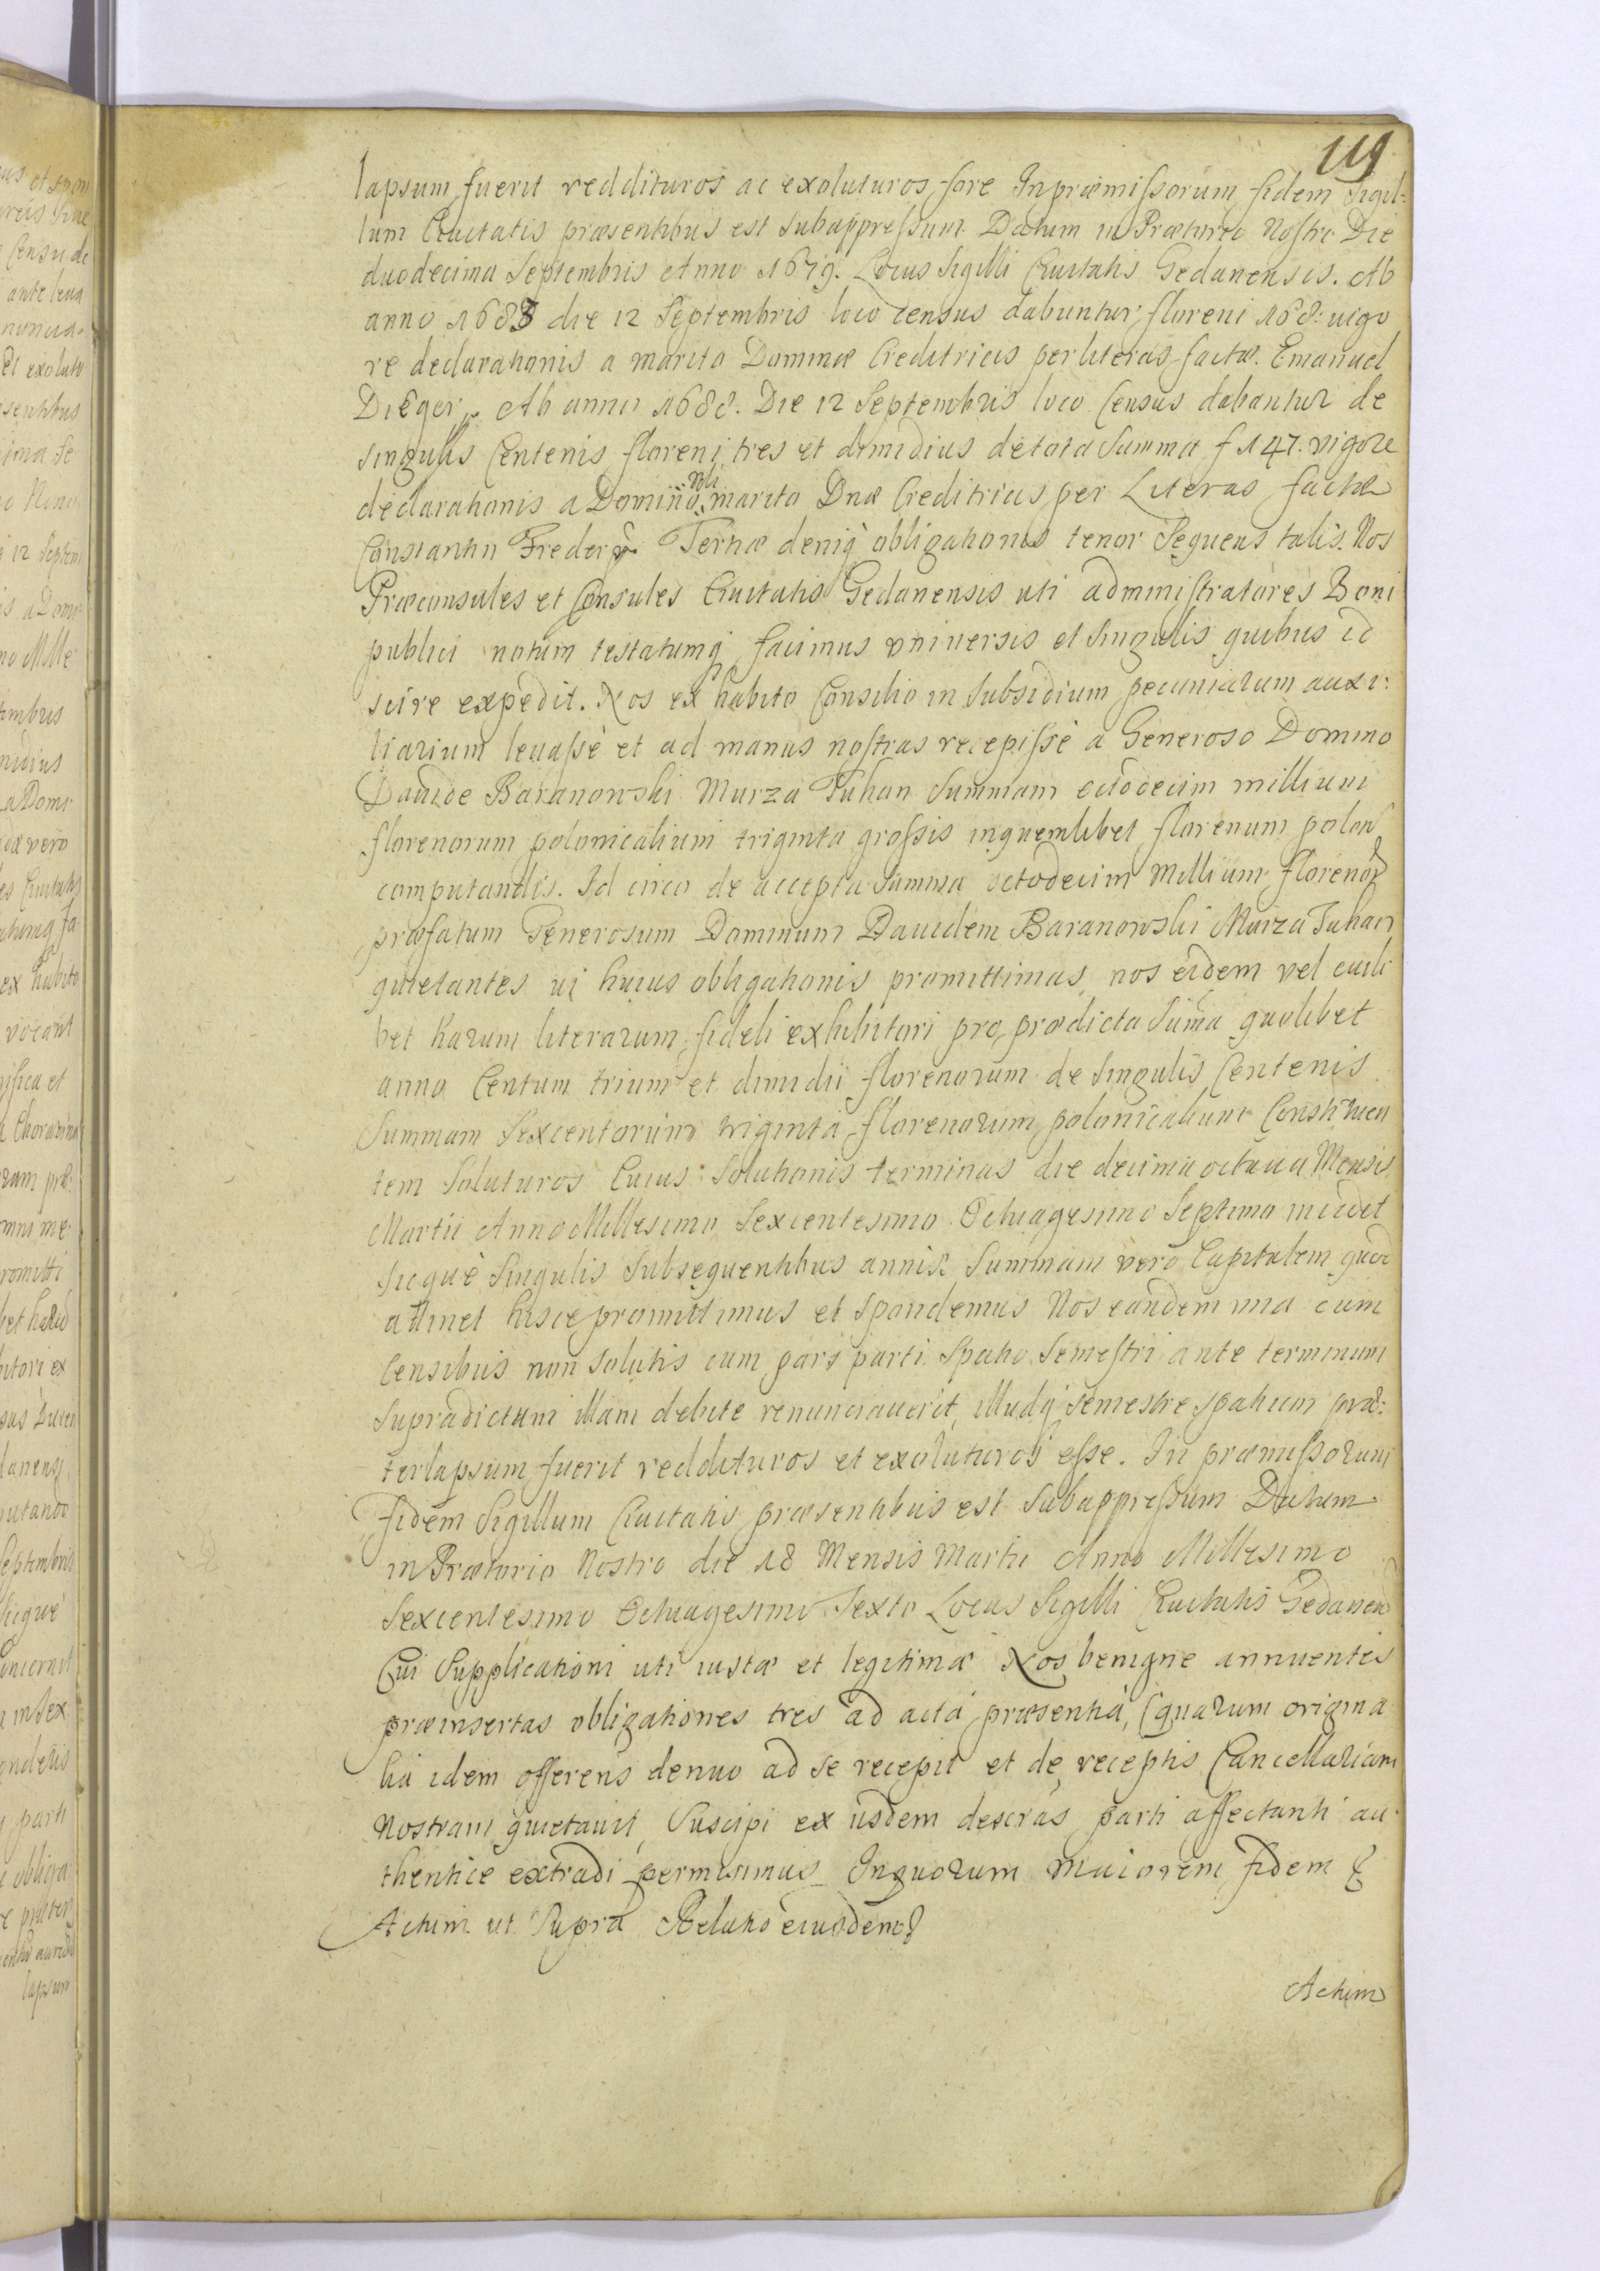 119
lapsum fuerit reddituros ac exoluturos fore Inpræmissorum fidem Sigil-
lum Civitatis præsentibus est Subappressum Datum in Prætorio Nostro Die
duodecima Septembris Anno 1679. Locus Sigilli Civitatis Gedanensis. Ab
anno 1683 die 12 Septembris loco census dabuntur floreni 168: vigo
re declarationis a marito Dominæ Creditricis per literas factæ. Emanuel
Dieger. Ab anno 1688. Die 12 Septembris loco Census dabantur de
singulis Centenis floreni tres et dimidius de tota Summa f 147. vigore
declarationis a Domino Nli marito Dnæ Creditricis per Literas factæ
Constantin Freder Tertiæ deniq obligationis tenor Sequens talis. Nos
Præconsules et Consules Civitatis Gedanensis uti administratores Boni
publici notum testatumq facimus universis et singulis quibus id
scire expedit. Nos ex habito Consilio in subsidium pecuniarum auxi:
liarium levasse et ad manus nostras recepisse a Generoso Domino
Davide Baranowski Murza Tuhan Summam octodecim millium
florenorum polonicalium triginta grossis inquemlibet florenum polon
computandis. Id circo de accepta Summa octodecim Millium floreno
præfatum Generosum Dominum Davidem Baranowski Murza Tuhan
quietantes vi huius obligationis promittimus, nos eidem vel cuili
bet harum literarum fideli exhibitori pro prædicta Suma quolibet
anno Centum trium et dimidii florenorum de Singulis Centenis
Summam Sexcentorum triginta florenorum polonicalium Constituen
tem Soluturos Cuius Solutionis terminus die decima octava Mensis
Martii Anno Millesimo Sexcentesimo Octuagesimo Septimo incidet
sicque Singulis Subsequentibus annis Summam vero Capitalem quod
attinet hisce promittimus et spondemus Nos eandem una cum
Censibus non Solutis cum pars parti Spatio Semestri ante terminum
Supradictum illam debite renunciaverit, illudq semestre spatium præ:
terlapsum fuerit reddituros et exoluturos esse. In præmissorum
fidem Sigillum Civitatis præsentibus est Subappressum Datum
in Prætorio Nostro die 18 Mensis Martii Anno Millesimo
Sexcentesimo Octuagesimo Sexto Locus Sigilli Civitatis Gedanen
Cui Supplicationi uti iustæ et legitimæ Nos benigne annuentes
præinsertas obligationes tres ad acta præsentia, (quarum origina
lia idem offerens denuo ad se recepit et de receptis Cancellariam
Nostram quietavit, Suscipi ex iisdem descras parti affectanti au
thentice extradi permisimus Inquorum maiorem fidem &
Actum ut Supra Relatio eiusdem
Actum